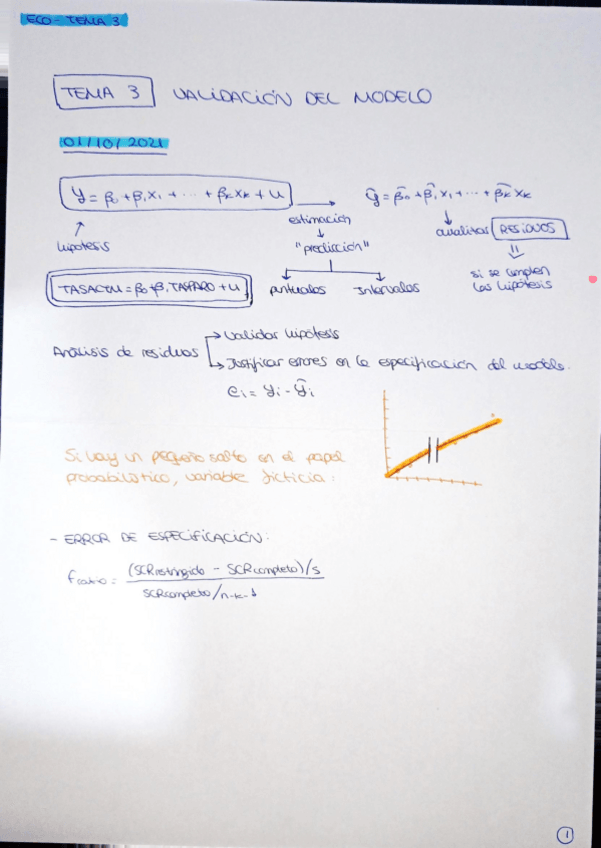 ECO - TEMA 3
TEMA 3 VALIDACIÓN DEL MODELO
01/10/2021
y = β0 + β1x1 + ... + βkxk + u
ŷ = β̂0 + β̂1x1 + ... + β̂kxk
estimación
"predicción"
hipótesis
analizar RESIDUOS
si se cumplen
las hipótesis
TASACTU = β0 + β1 TASPARO + u
puntuales
Intervalos
Análisis de residuos
Validar hipótesis
Justificar errores en la especificación del modelo.
ei = yi - ŷi
Si hay un pequeño salto en el papel
probabilístico, variable ficticia:
- ERROR DE ESPECIFICACIÓN:
Fratio = (SCRrestringido - SCRcompleto)/s
SCRcompleto/n-k-1
1